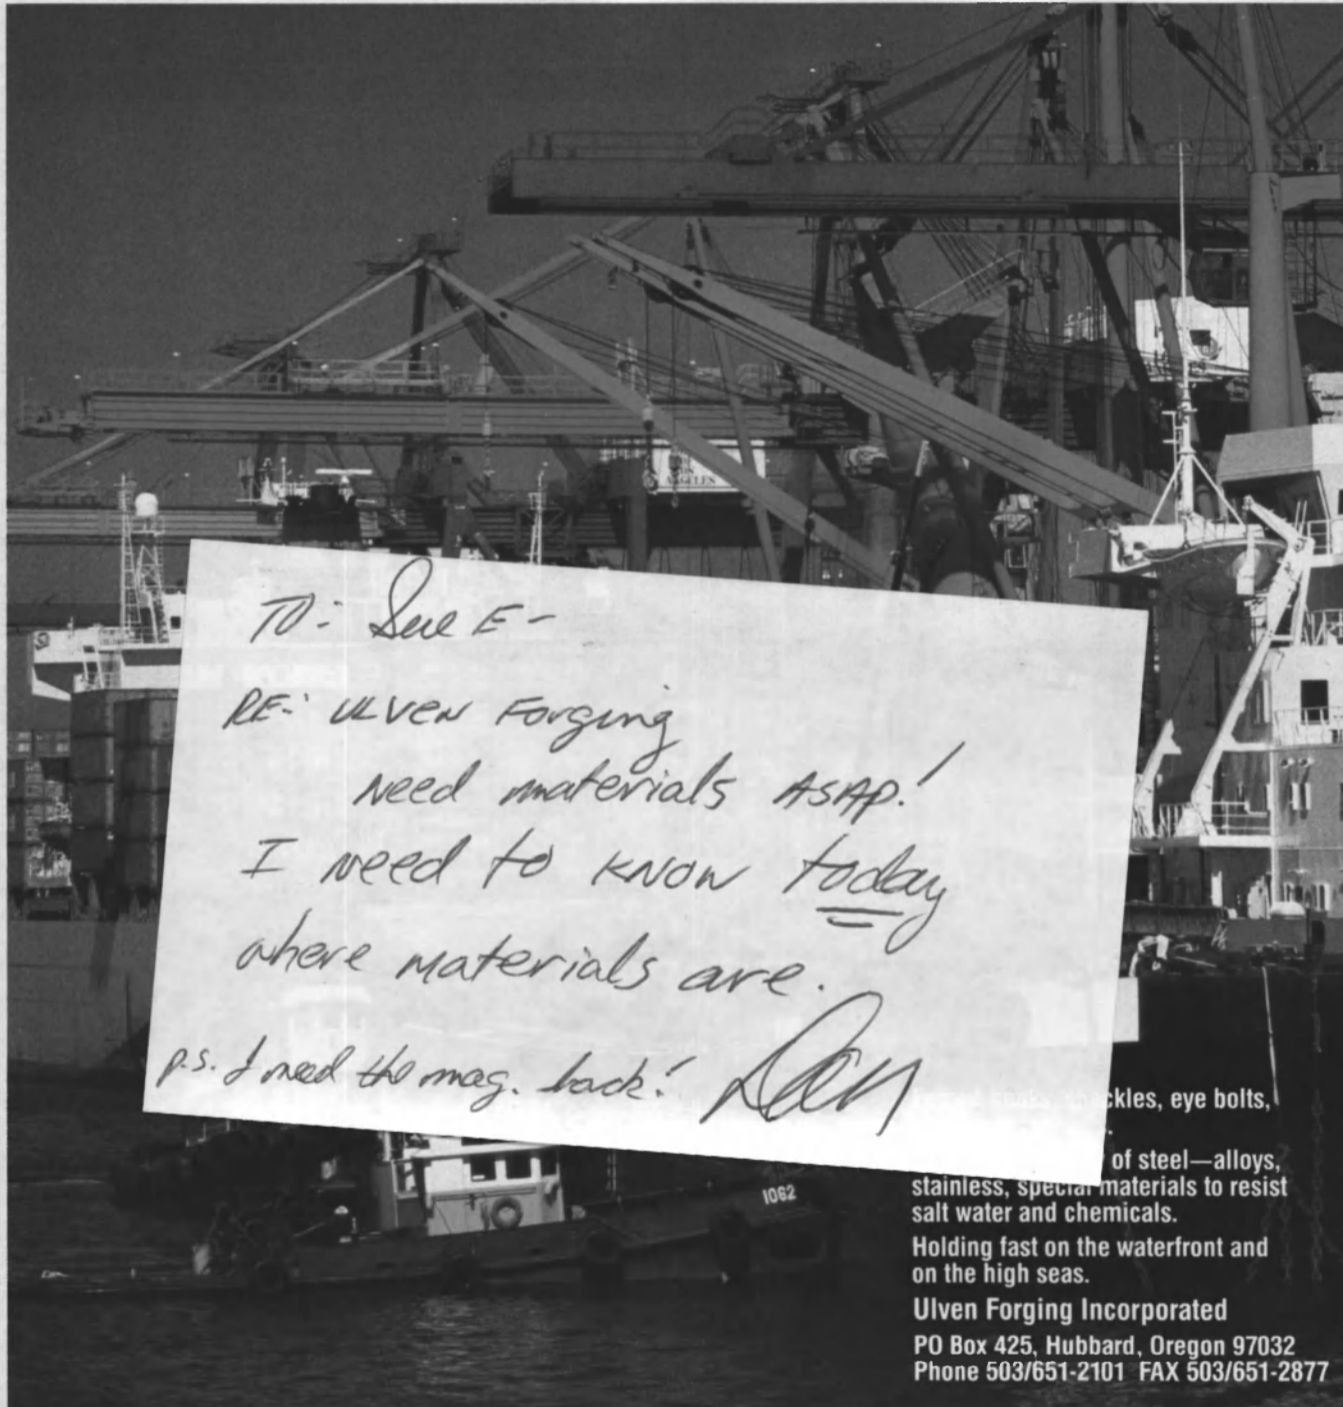 ANGELES
TO: Sue E-
RE: ULVEN Forging
Need materials ASAP!
I need to know today
where materials are.
p.s. I need the mag. back!
ckles, eye bolts,
of steel—alloys,
stainless, special materials to resist
salt water and chemicals.
1062
Holding fast on the waterfront and
on the high seas.
Ulven Forging Incorporated
PO Box 425, Hubbard, Oregon 97032
Phone 503/651-2101 FAX 503/651-2877